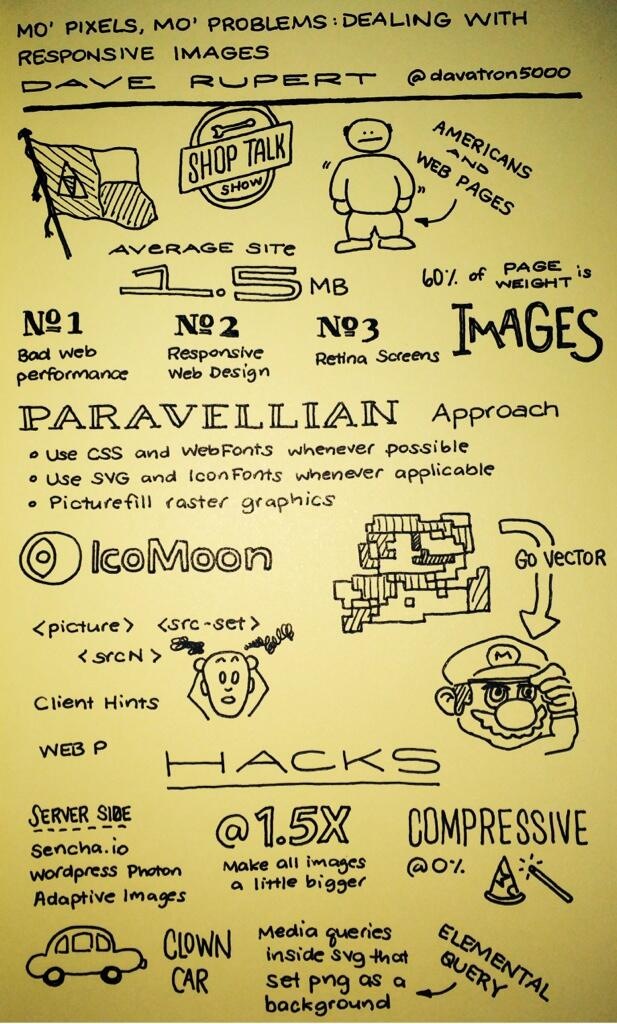 MO' PIXELS, MO' PROBLEMS: DEALING WITH
RESPONSIVE IMAGES
DAVE RUPERT @davatron5000
SHOP TALK
SHOW
AMERICANS
AND
WEB PAGES
AVERAGE SITE
1.5 MB
60% of PAGE WEIGHT is
IMAGES
No 1
Bad web
performance
No 2
Responsive
Web Design
No 3
Retina Screens
PARAVELLIAN Approach
• Use CSS and WebFonts whenever possible
• Use SVG and IconFonts whenever applicable
• Picturefill raster graphics
IcoMoon
GO VECTOR
<picture> <src-set>
<srcN>
M
Client Hints
WEB P
HACKS
SERVER SIDE
Sencha.io
Wordpress Photon
Adaptive Images
@1.5X
Make all images
a little bigger
COMPRESSIVE
@0%
CLOWN
CAR
Media queries
inside svg that
set png as a
background
ELEMENTAL
QUERY